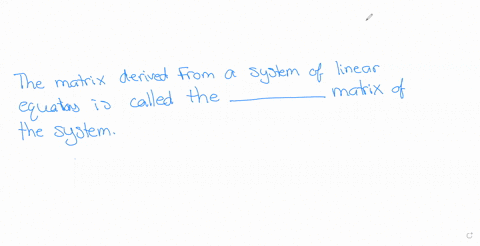 The matrix derived from a system of linear
equatns is called the __________ matrix of
the system.